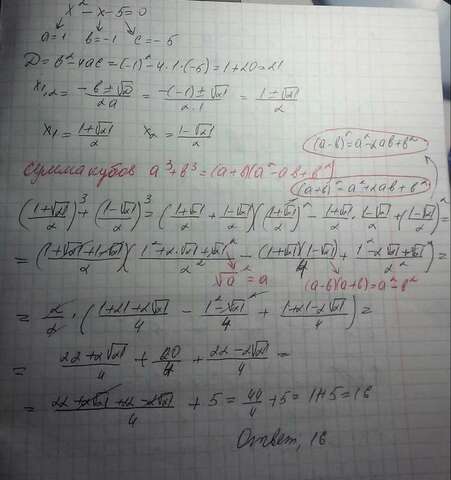 x² - x - 5 = 0
a=1 b=-1 c=-5
D = b² - 4ac = (-1)² - 4·1·(-5) = 1+20 = 21
x₁,₂ = (-b ± √D)/2a = (-(-1) ± √21)/(2·1) = (1 ± √21)/2
x₁ = (1+√21)/2 x₂ = (1-√21)/2
(a-b)² = a² - 2ab + b²
Сумма кубов a³ + b³ = (a+b)(a² - ab + b²)
(a+b)² = a² + 2ab + b²
((1+√21)/2)³ + ((1-√21)/2)³ = ((1+√21)/2 + (1-√21)/2)(((1+√21)/2)² - (1+√21)/2 · (1-√21)/2 + ((1-√21)/2)²) =
= ((1+√21+1-√21)/2)((1²+2·√21+√21²)/2² - ((1+√21)(1-√21))/4 + (1²-2√21+√21²)/2²) =
√a² = a (a-b)(a+b) = a² - b²
= 2/2 · ((1+21+2√21)/4 - (1²-√21²)/4 + (1+21-2√21)/4) =
= (22+2√21)/4 + 20/4 + (22-2√21)/4 =
= (22+2√21+22-2√21)/4 + 5 = 44/4 + 5 = 11+5 = 16
Ответ, 16